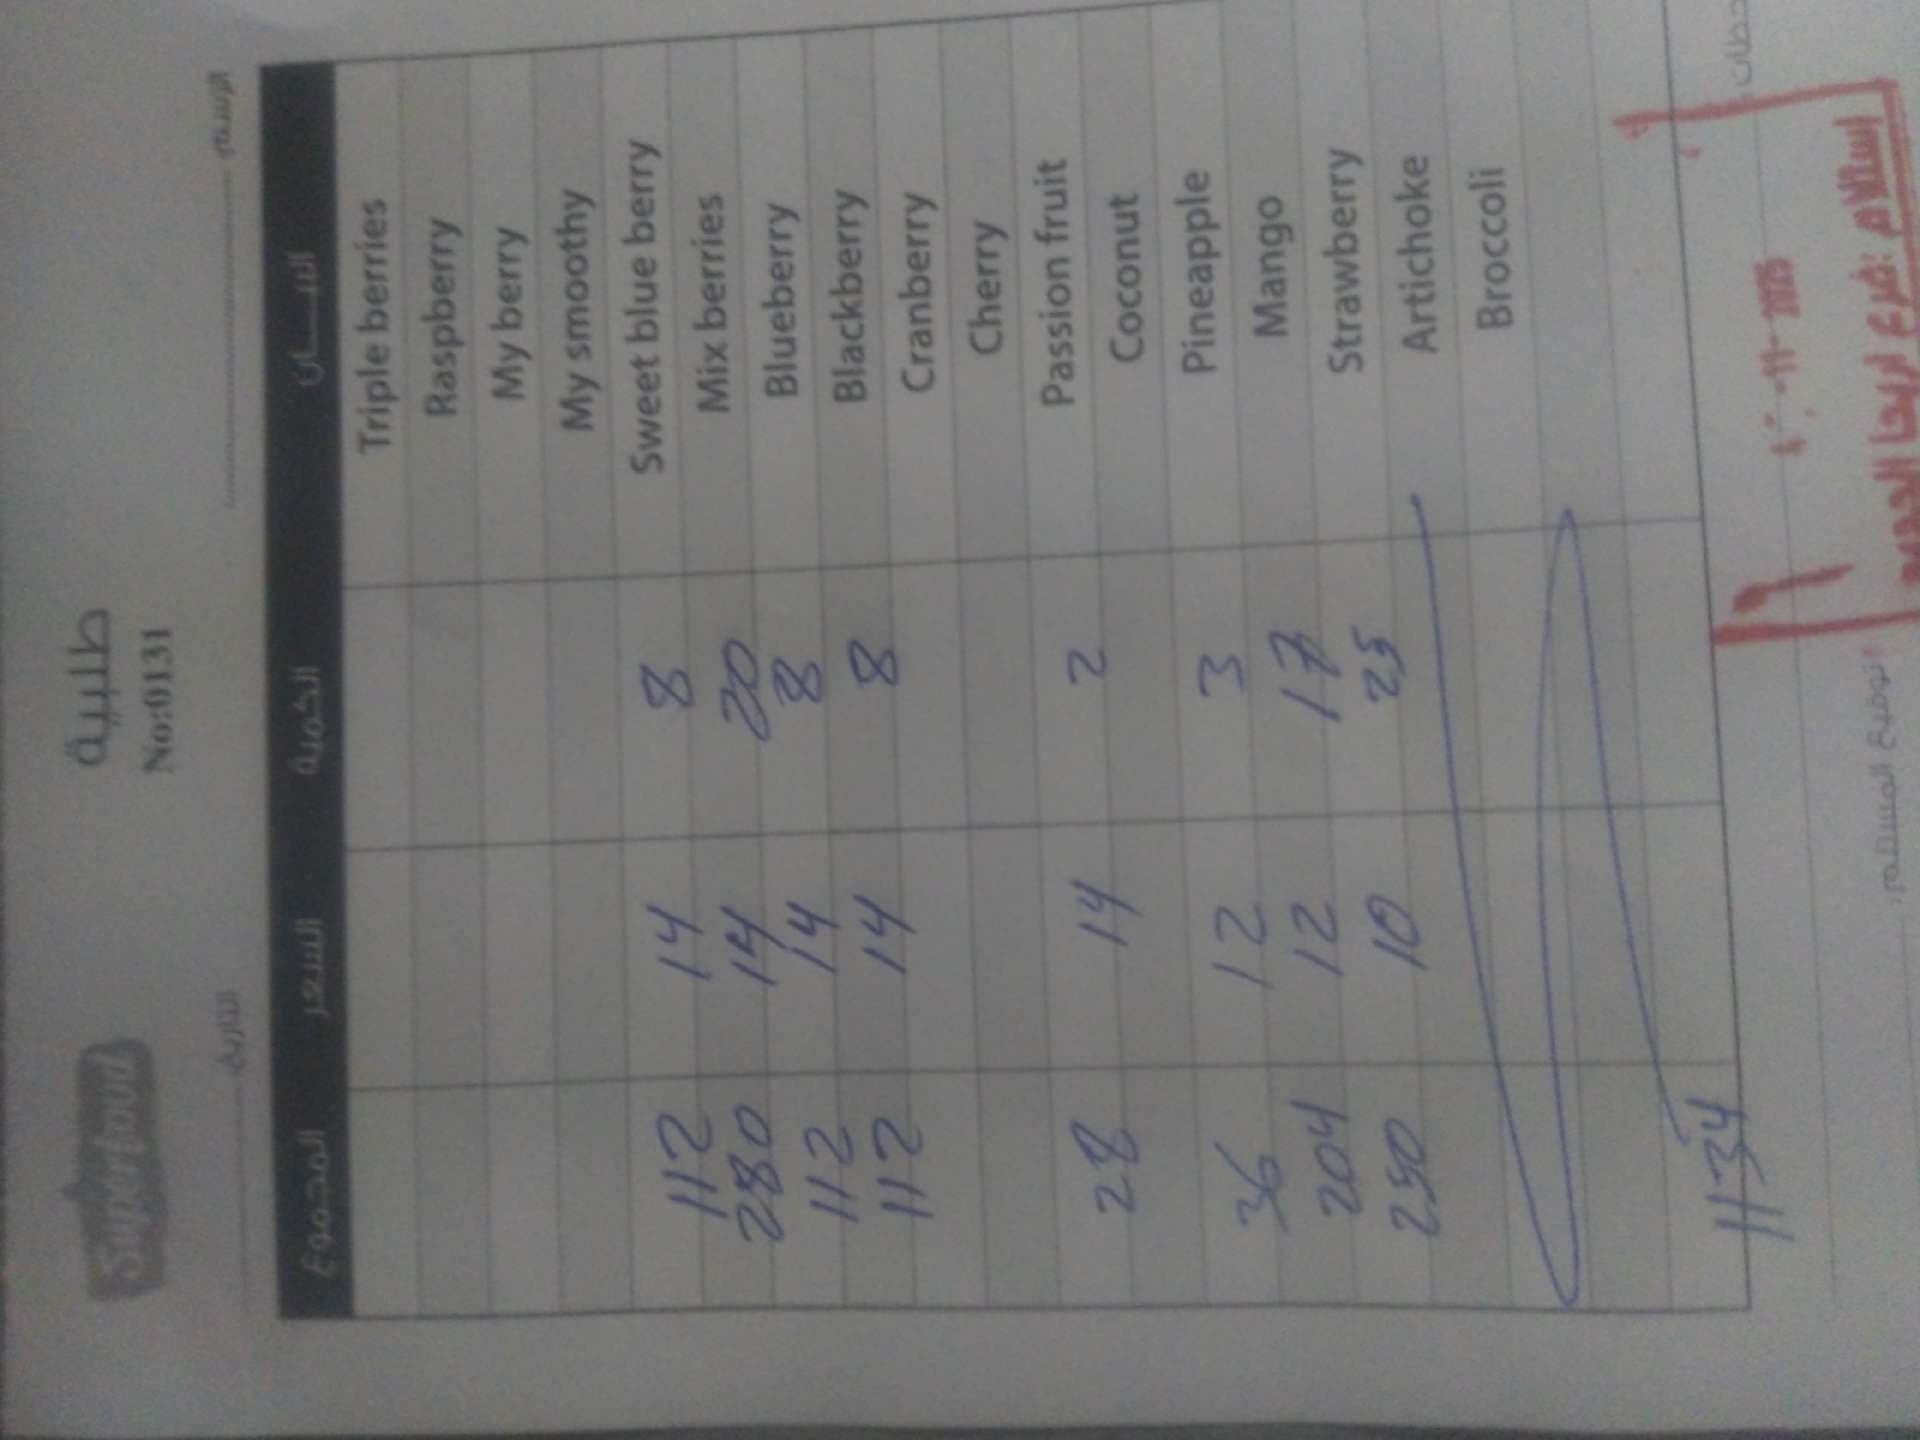 Superfood
طلبية
No:0131
الإسم
التاريخ
البيـــان الكمية السعر المجموع
Triple berries
Raspberry
My berry
My smoothy
Sweet blue berry 8 14 112
Mix berries 20 14 280
Blueberry 8 14 112
Blackberry 8 14 112
Cranberry
Cherry
Passion fruit 2 14 28
Coconut
Pineapple 3 12 36
Mango 17 12 204
Strawberry 25 10 250
Artichoke
Broccoli
1134
-11- 2025
توقيع المستلم:
إستلام :فرع اريحا